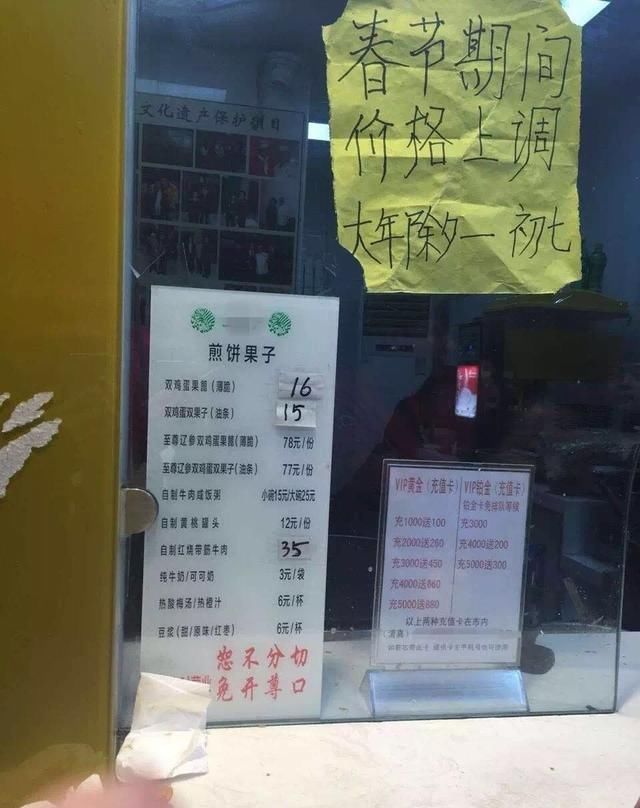 春节期间
价格上调
大年除夕一初七
文化遗产保护项目
煎饼果子
双鸡蛋果篦(薄脆) 16
双鸡蛋双果子(油条) 15
至尊辽参双鸡蛋果篦(薄脆) 78元/份
至尊辽参双鸡蛋双果子(油条) 77元/份
自制牛肉咸饭粥 小碗15元/大碗25元
自制黄桃罐头 12元/份
自制红烧带筋牛肉 35
纯牛奶/可可奶 3元/袋
热酸梅汤/热橙汁 6元/杯
豆浆(甜/原味/红枣) 6元/杯
恕不分切
免开尊口
VIP黄金(充值卡)
充1000送100
充2000送260
充3000送450
充4000送660
充5000送880
VIP铂金(充值卡)
铂金卡免排队等候
充3000
充4000送200
充5000送300
以上两种充值卡在市内
(清真)